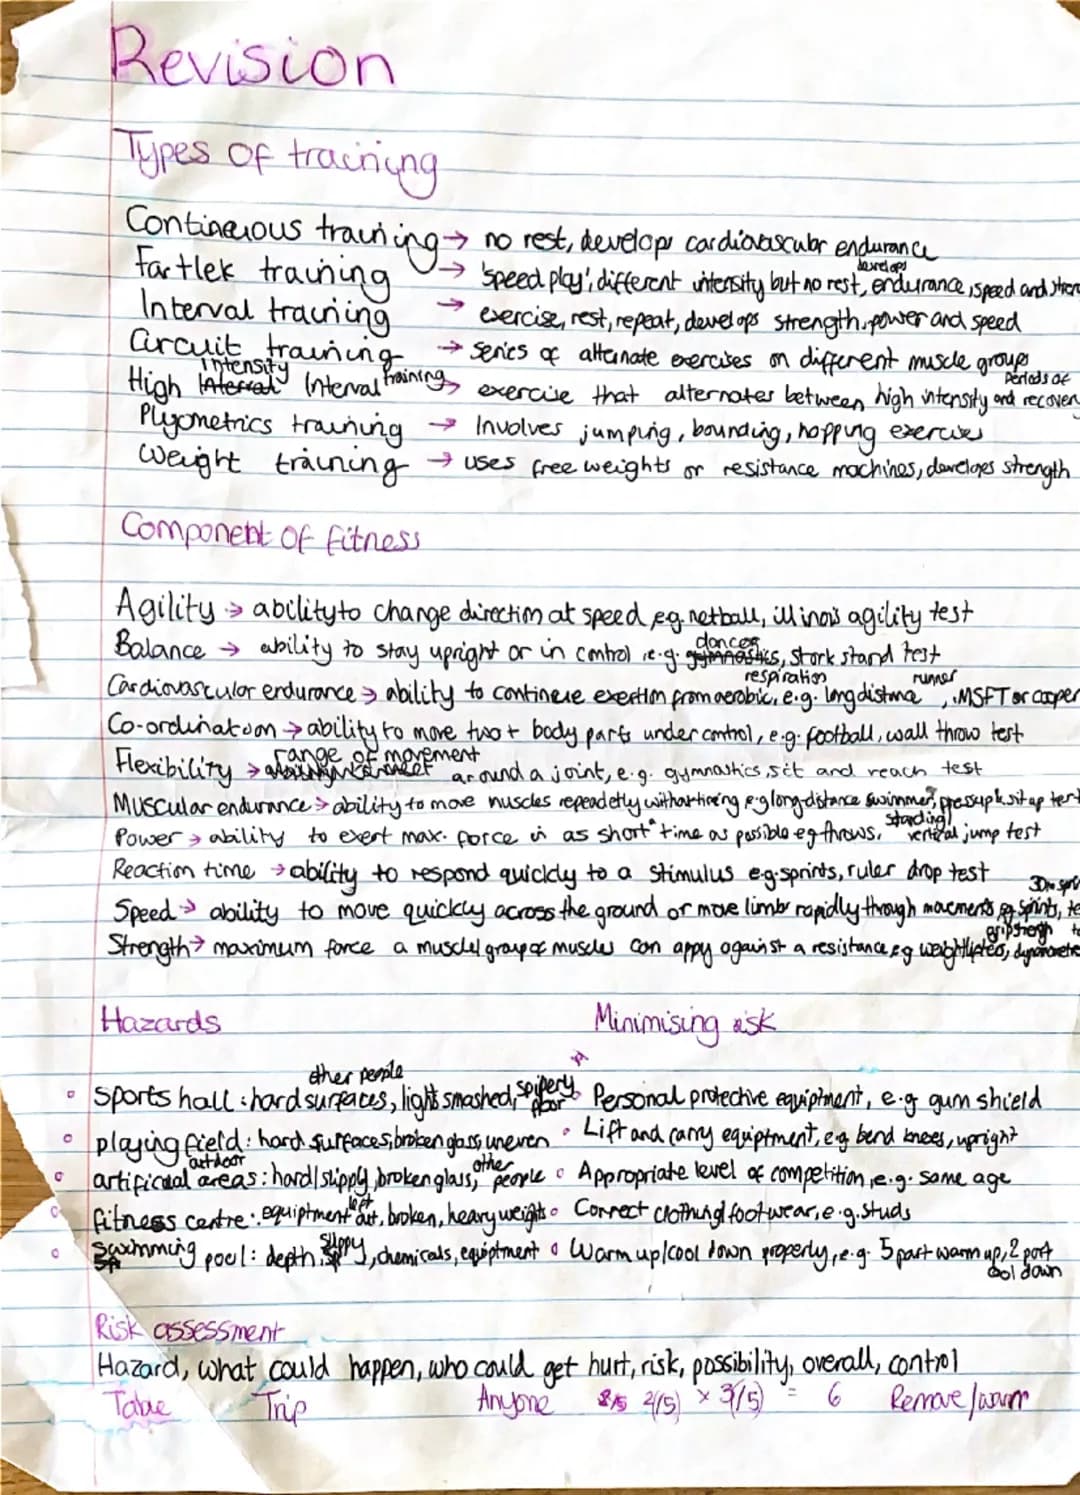 Revision
Types of training
Continuous training → no rest, develops cardiovascular endurance
Fartlek training → 'speed play', different intensity but no rest, develops endurance, speed and
Interval training → exercise, rest, repeat, develops strength, power and speed
Circuit training → series of alternate exercises on different muscle groups
High intensity Interval training → exercise that alternates between high intensity and periods of recovery
Plyometrics training → Involves jumping, bounding, hopping exercises
Weight training → uses free weights or resistance machines, develops strength
Component of fitness
Agility → ability to change direction at speed, eg. netball, illinois agility test
Balance → ability to stay upright or in control, e.g. dancer, stork stand test
Cardiovascular endurance → ability to continue exertion from aerobic respiration, e.g. long distance runner, MSFT or cooper
Co-ordination → ability to move two + body parts under control, e.g. football, wall throw test
Flexibility → range of movement around a joint, e.g. gymnastics, sit and reach test
Muscular endurance → ability to move muscles repeadetly without tireing e.g long-distance swimmer, press up & sit up test
Power → ability to exert max. force in as short time as possible eg throws, standing/vertical jump test
Reaction time → ability to respond quickly to a stimulus e.g. sprints, ruler drop test
Speed → ability to move quickly across the ground or move limbs rapidly through movements eg. sprints, 30m
Strength → maximum force a muscle/group of muscles can appy against a resistance, eg weightlifters, grip
Hazards
Minimising risk
◦ sports hall : hard surfaces, other people, light smashed, floor
◦ Personal protective equiptment, e.g gum shield
◦ playing field : hard surfaces, broken glass, uneven
◦ Lift and carry equiptment, e.g bend knees, upright
◦ artificial outdoor areas : hard/slippy, broken glass, other people
◦ Appropriate level of competition, e.g. same age
◦ fitness centre : equiptment left out, broken, heavy weights
◦ Correct clothing/footwear, e.g. studs
◦ Swimming pool : depth, slippy, chemicals, equiptment
◦ Warm up/cool down properly, e.g. 5 part warm up, 2 part cool down
Risk assessment
Hazard, what could happen, who could get hurt, risk, possibility, overall, control
Table Trip Anyone 2(/5) × 3(/5) = 6 Remove/warn